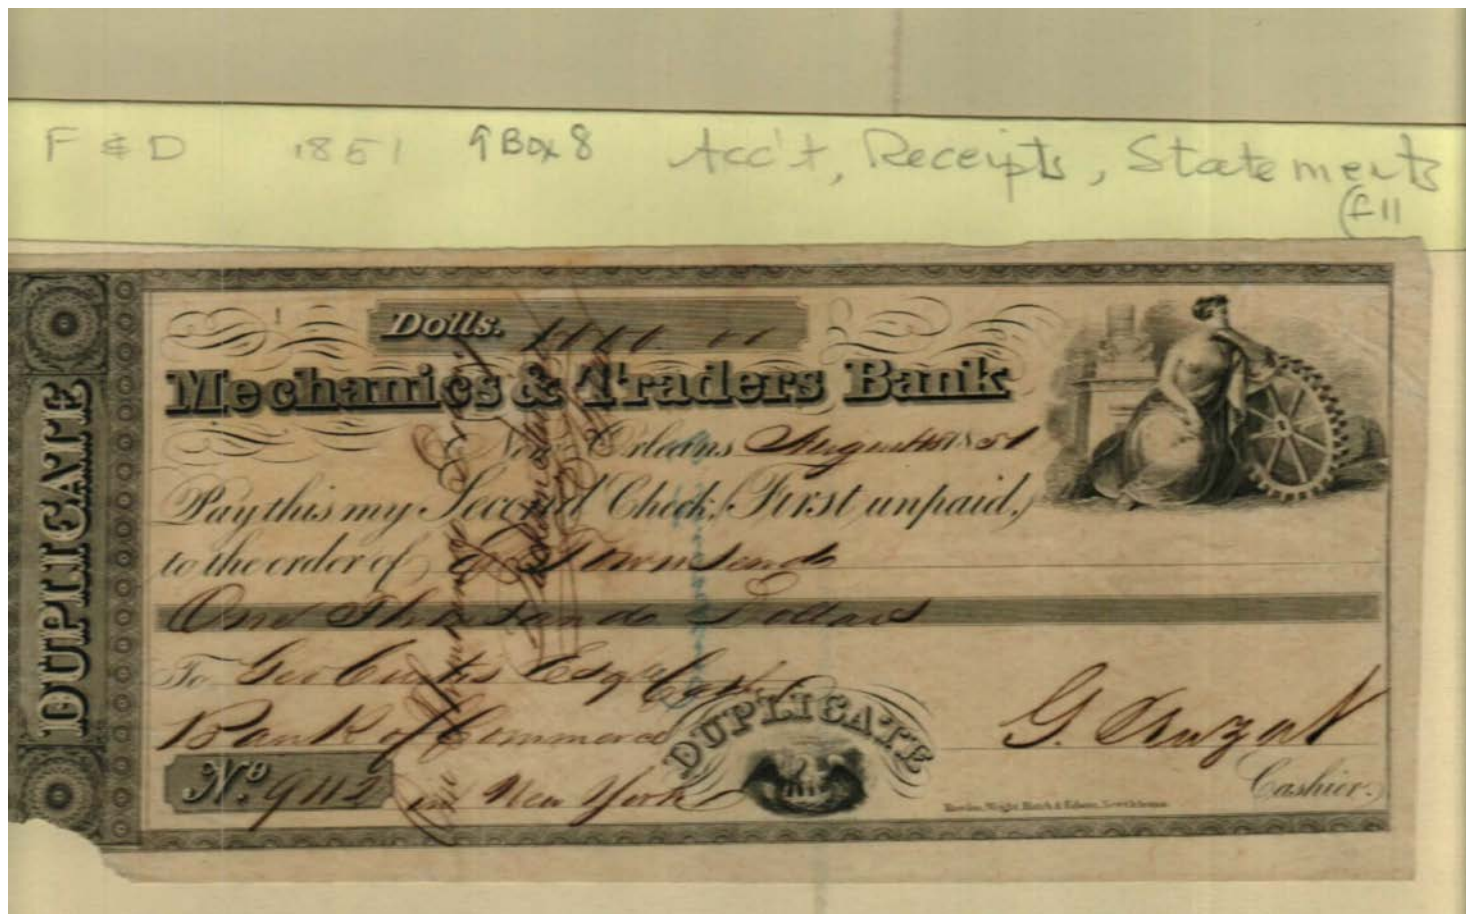 F & D 1851 Box 8 Acc't, Receipts, Statements
(f 11
DUPLICATE
Dolls. 1000.00
Mechanics & Traders Bank
New Orleans August 1851
Pay this my Second Check, (First unpaid,)
to the order of Townsend
One Thousand Dollars
To Geo Curtis Esq Cash
Bank of Commerce
No. 9112 in New York
DUPLICATE
G. Cruzat
Cashier.
Rawdon, Wright, Hatch & Edson, New Orleans